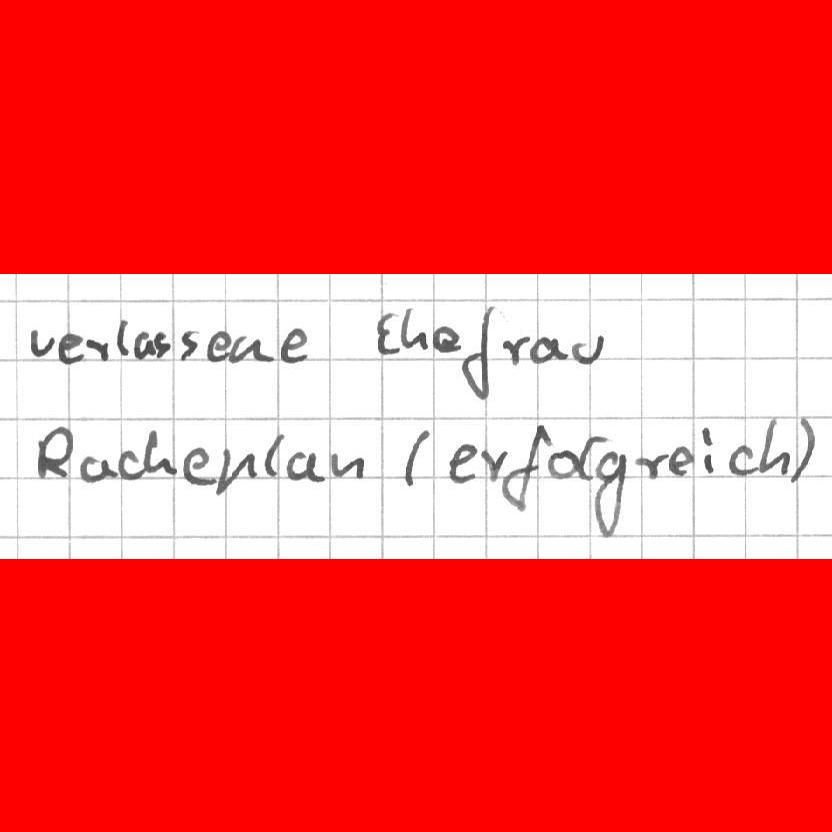 verlassene Ehefrau
Racheplan (erfolgreich)